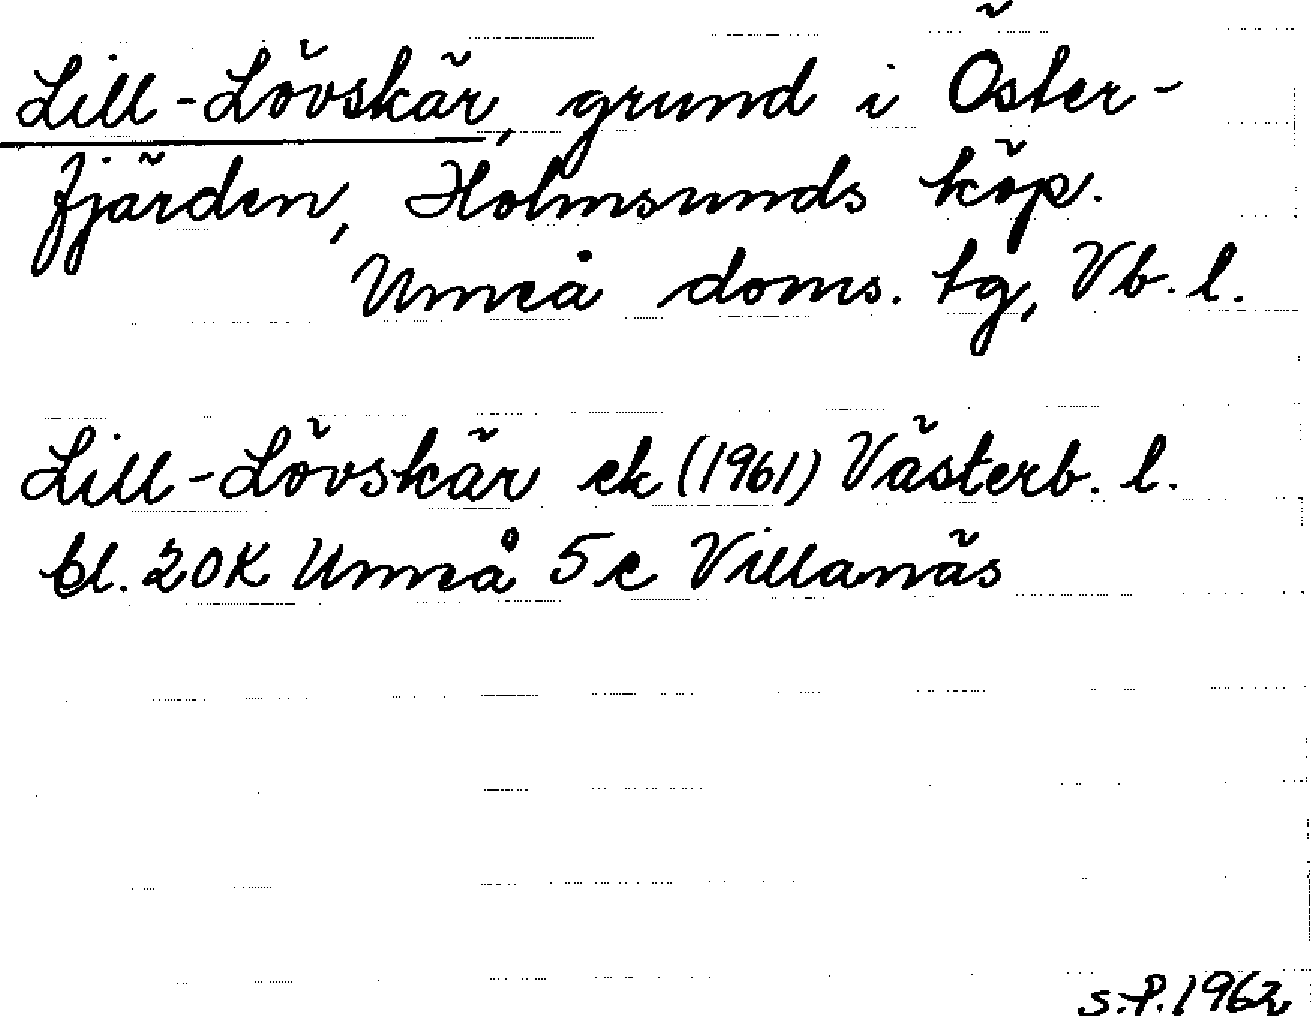 Lill-Lövskär, grund i Öster-
fjärden, Holmsunds köp.
Umeå doms. tg, Vb. l.
Lill-Lövskär ek (1961) Västerb. l.
bl. 20K Umeå 5c Villanäs
S.P. 1962